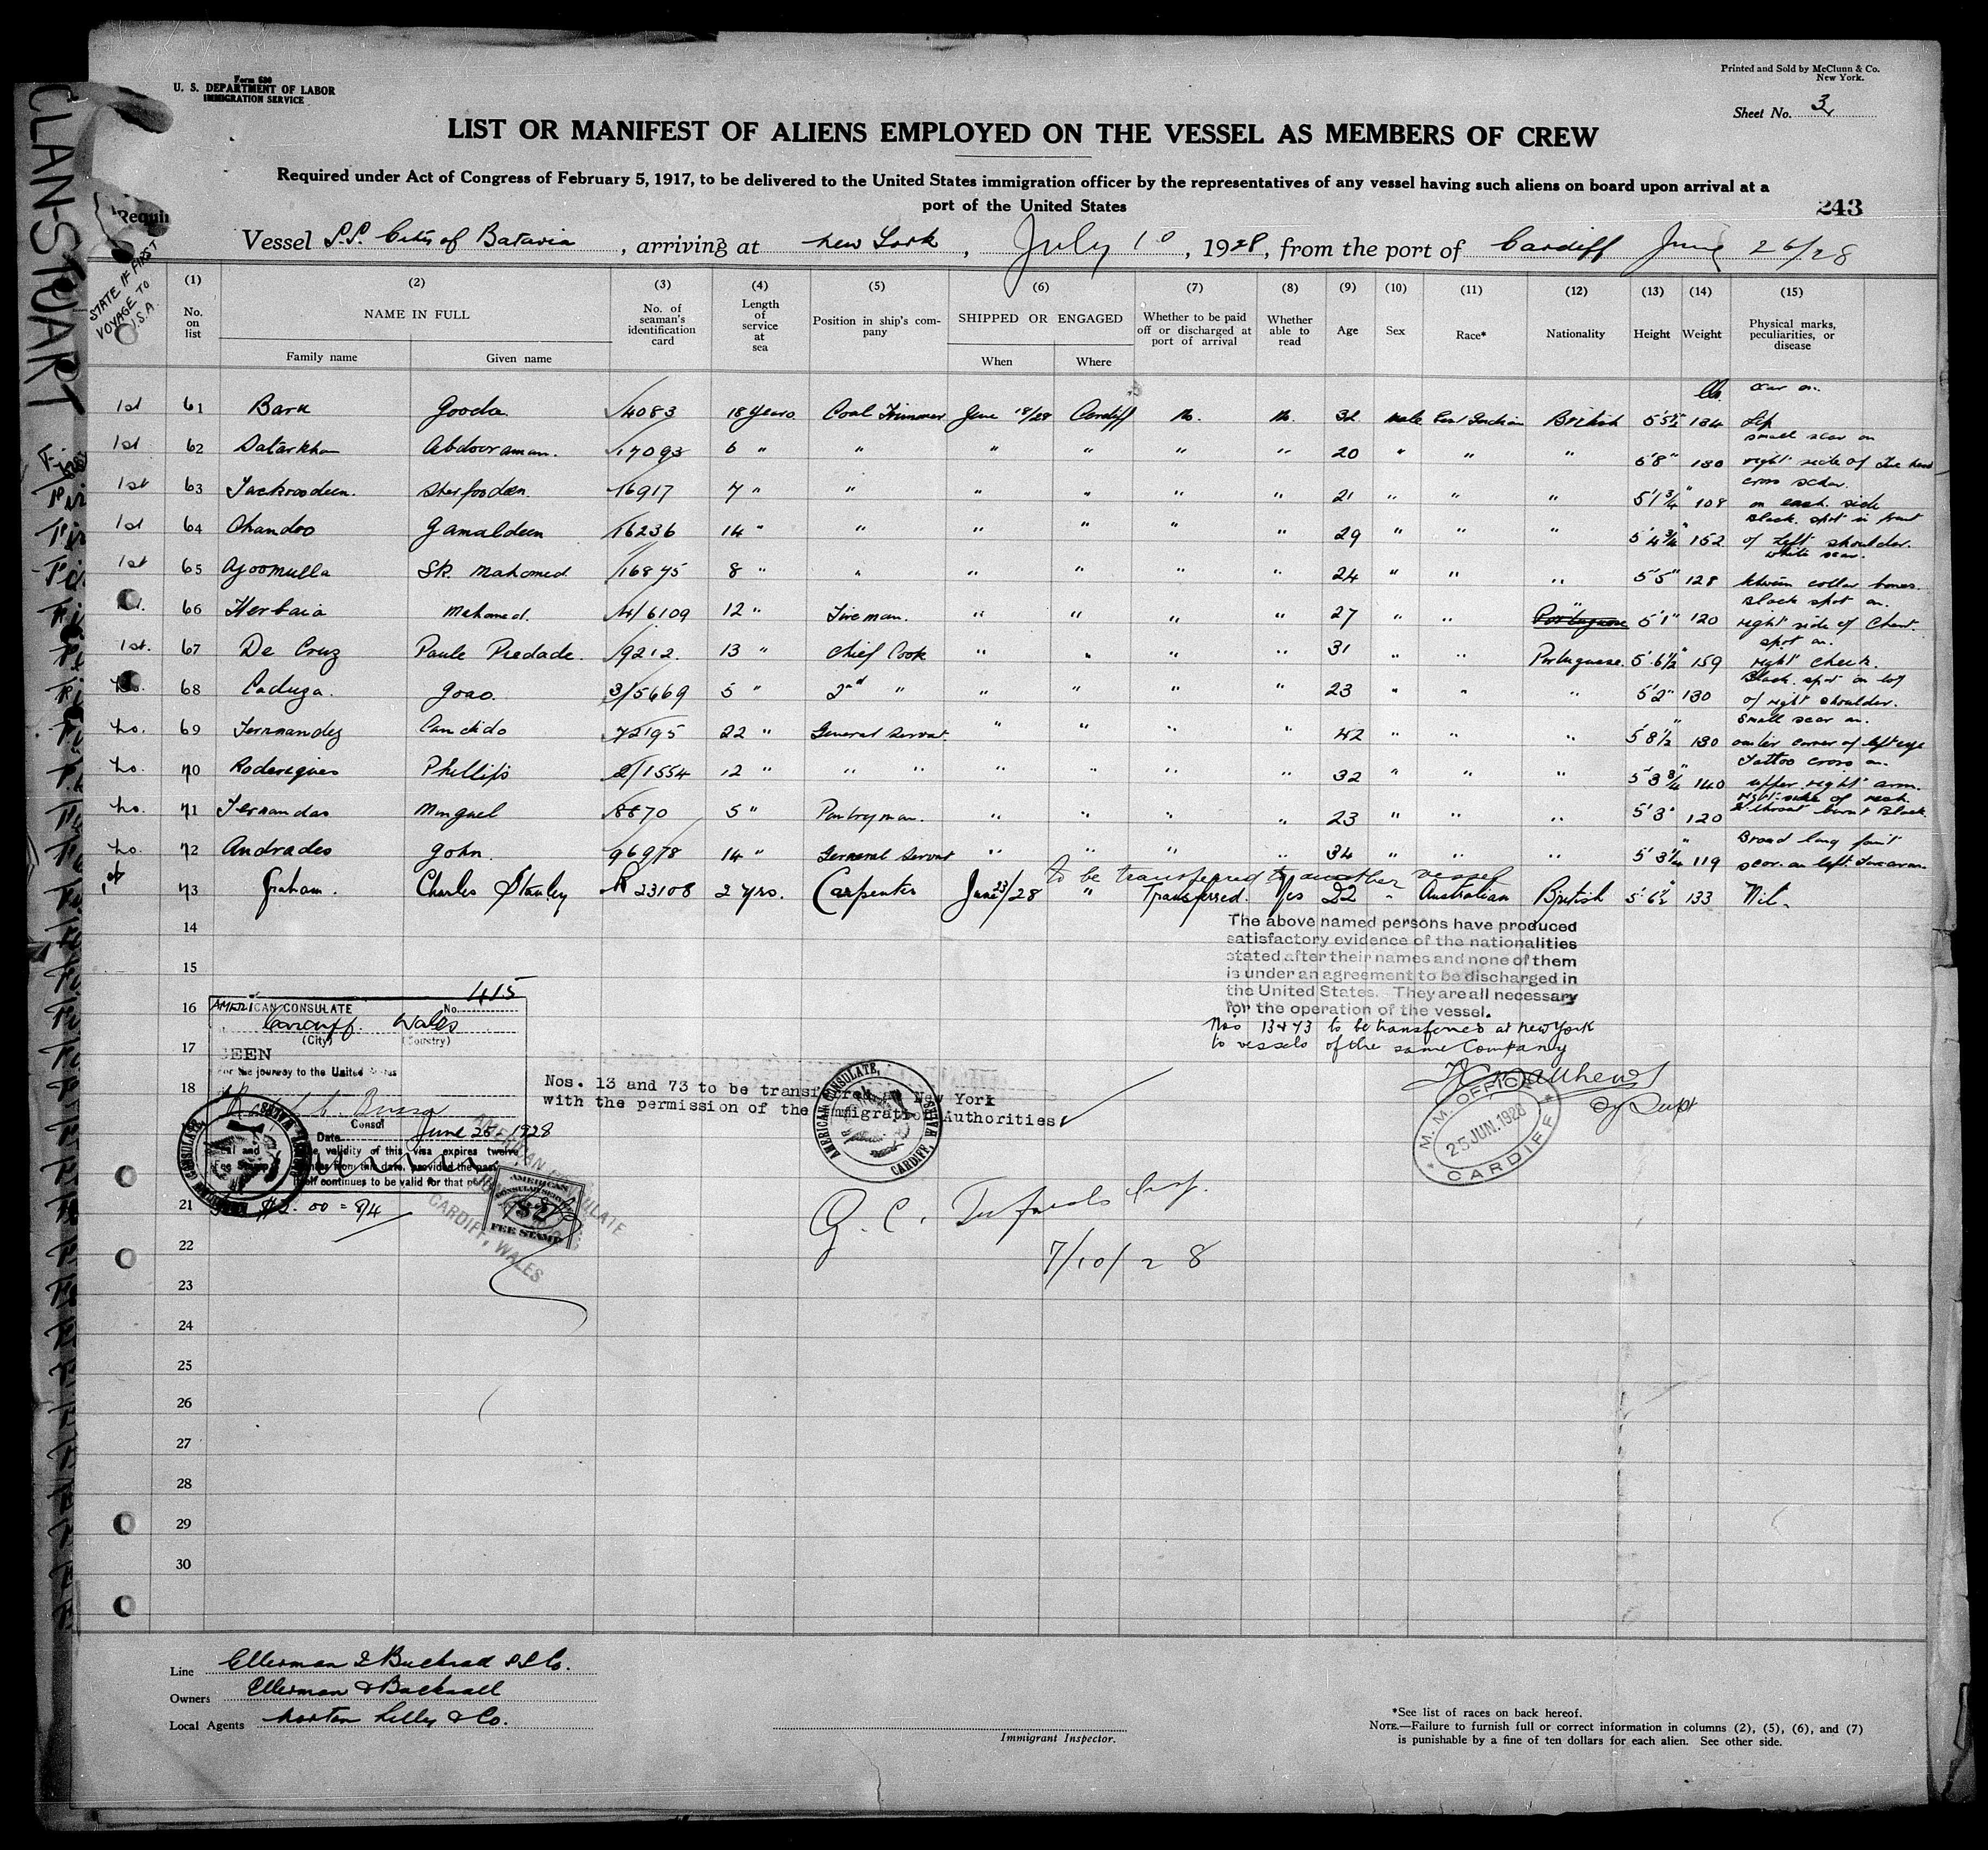 Form 680
U. S. DEPARTMENT OF LABOR
IMMIGRATION SERVICE
Printed and Sold by McClunn & Co.
New York.
Sheet No. 3
LIST OR MANIFEST OF ALIENS EMPLOYED ON THE VESSEL AS MEMBERS OF CREW
Required under Act of Congress of February 5, 1917, to be delivered to the United States immigration officer by the representatives of any vessel having such aliens on board upon arrival at a
port of the United States
243
CLAN-STUART
Requir
Vessel S.S. City of Batavia, arriving at New York, July 10, 1928, from the port of Cardiff June 26/28
STATE IF FIRST VOYAGE TO U.S.A.
(1) No. on list
(2) NAME IN FULL
Family name Given name
(3) No. of seaman's identification card
(4) Length of service at sea
(5) Position in ship's company
(6) SHIPPED OR ENGAGED
When Where
(7) Whether to be paid off or discharged at port of arrival
(8) Whether able to read
(9) Age
(10) Sex
(11) Race*
(12) Nationality
(13) Height
(14) Weight
(15) Physical marks, peculiarities, or disease
1st 61 Bark Gooda 4083 18 years Coal Trimmer June 18/28 Cardiff No. No. 32 male East Indian British 5'5½" 134 scar on lip
1st 62 Datarkhan Abdooraman. 17093 6 " " " " " " 20 " " " 5'8" 130 small scar on right side of fore head
1st 63 Jackroodeen. Sherfooden. 16917 7 " " " " " " 21 " " " 5'1¾" 108 cross scar on each side
1st 64 Chandoo Gamaldeen 16236 14 " " " " " " 29 " " " 5'4¾" 152 Black spot in front of left shoulder.
1st 65 Ajoomulla Sk. Mahomed 16875 8 " " " " " " 24 " " " 5'5" 128 white scar between collar bones.
66 Herbaia Mahomed. 4/6109 12 " Fireman. " " " " 27 " " Portuguese " 5'1" 120 Black spot on right side of Chest.
1st. 67 De Cruz Paule Piedade. 9212. 13 " Chief Cook " " " " 31 " " Portuguese. 5'6½" 159 spot on right cheek.
68 Caduza. Joao. 3/5669 5 " 2nd " " " " " 23 " " " 5'2" 130 Black spot on top of right shoulder.
No. 69 Fernandez Candido 72195 22 " General Servant. " " " " 42 " " " 5'8½" 130 Small scar on outer corner of left eye
No. 70 Roderigues Phillips 2/1554 12 " " " " " " " 32 " " " 5'3¾" 140 Tattoo cross on upper right arm.
No. 71 Fernandas Minguel 8870 5 " Pantryman. " " " " 23 " " " 5'3" 120 right side of neck & throat burnt Black
No. 72 Andrades John. 96978 14 " General Servant " " " " 34 " " " 5'3¼" 119 Broad long faint scar on left forearm
to be transferred to another vessel
1st 73 Graham. Charles Stanley R 23108 2 yrs. Carpenter June 23/28 " Transferred. Yes 22 " Australian British 5'6½" 133 Nil.
14
15
16
17
18
21
22
23
24
25
26
27
28
29
30
The above named persons have produced
satisfactory evidence of the nationalities
stated after their names and none of them
is under an agreement to be discharged in
the United States. They are all necessary
for the operation of the vessel.
Nos 13 & 73 to be transferred at New York
to vessels of the same Company
Matthews
Dy Supt
M. M. OFFICE
25 JUN. 1928
CARDIFF
AMERICAN CONSULATE No. 415
Cardiff Wales
(City) (Country)
SEEN
For the journey to the United States
Consul
Date June 26 1928
The validity of this visa expires twelve
months from this date, provided the passport
itself continues to be valid for that period
$2.00 = 8/4
AMERICAN CONSULATE
CARDIFF, WALES
AMERICAN
CONSULAR SERVICE
$2
FEE STAMP
Nos. 13 and 73 to be transferred at New York
with the permission of the Immigration Authorities
AMERICAN CONSULATE, CARDIFF, WALES
7/10/28
Line Ellerman & Bucknall S.S. Co.
Owners Ellerman & Bucknall
Local Agents Norton Lilly & Co.
Immigrant Inspector.
*See list of races on back hereof.
NOTE.—Failure to furnish full or correct information in columns (2), (5), (6), and (7)
is punishable by a fine of ten dollars for each alien. See other side.